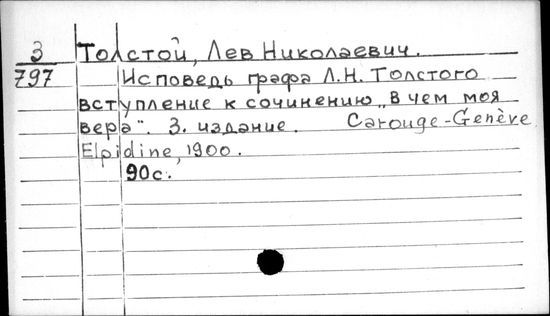 3 Толстой, Лев Николаевич.
797 Исповедь графа Л.Н. Толстого
вступление к сочинению „В чем моя
вера". 3. издание. Carouge-Genève
Elpidine, 1900.
90с.